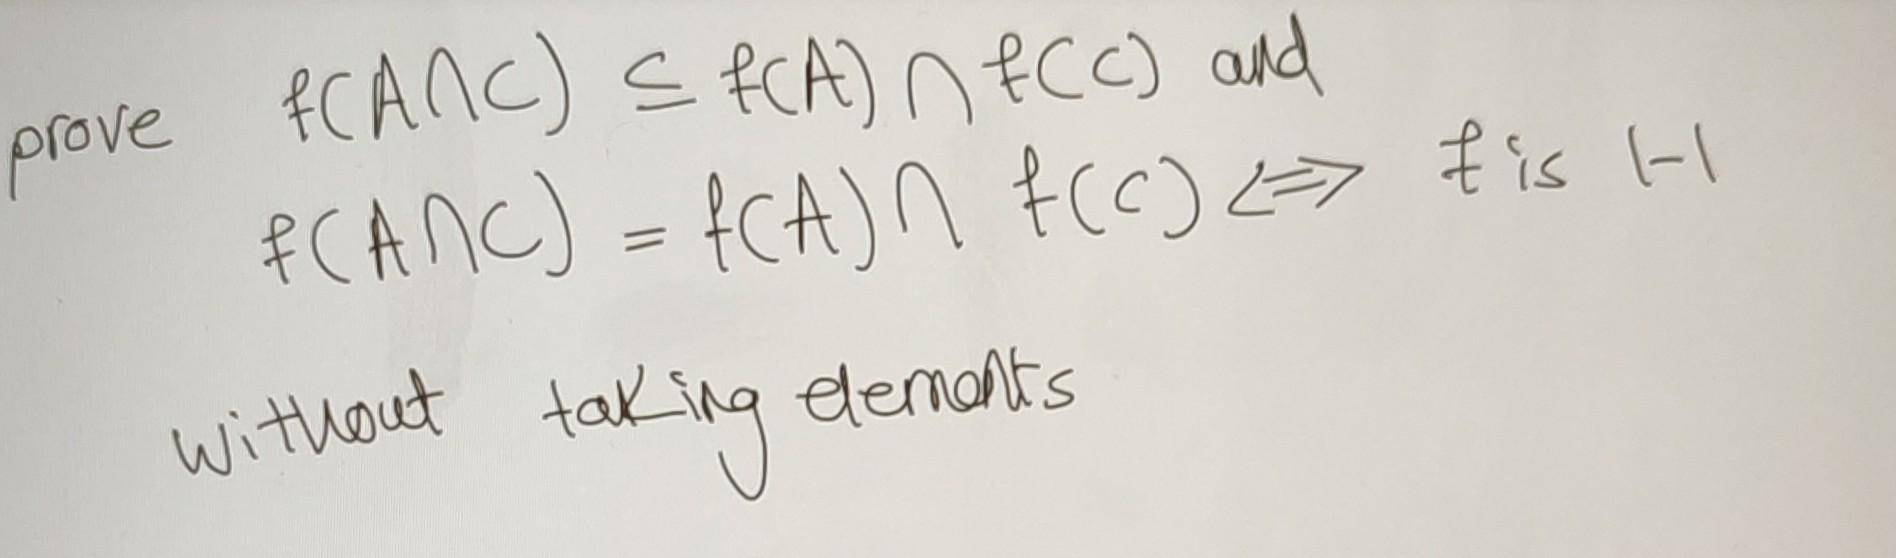 prove f(A∩C) ⊆ f(A) ∩ f(C) and
f(A∩C) = f(A) ∩ f(C) ⟺ f is 1-1
without taking elements